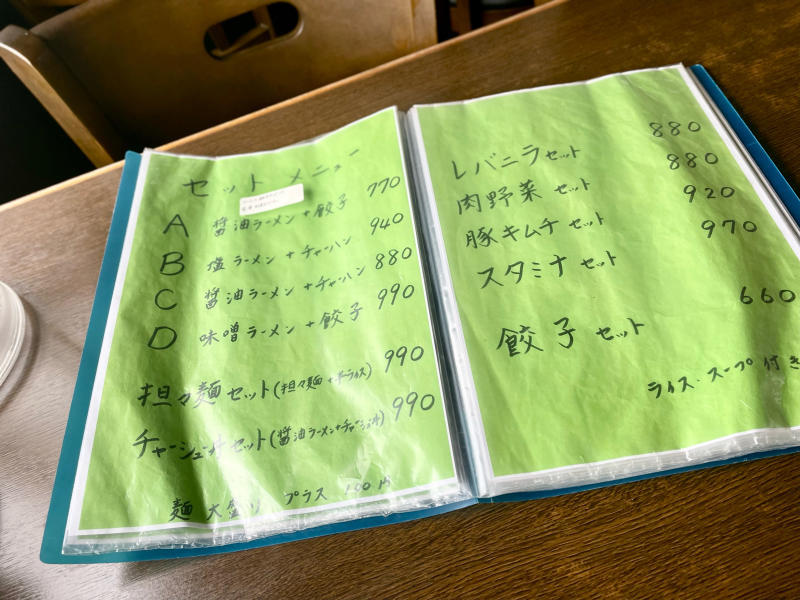 セット メニュー
A 醤油ラーメン+餃子 770
B 塩ラーメン+チャーハン 940
C 醤油ラーメン+チャーハン 880
D 味噌ラーメン+餃子 990
担々麺セット(担々麺+半ライス) 990
チャーシュー丼セット(醤油ラーメン+チャーシュー丼) 990
麺 大盛り プラス 100円
レバニラセット 880
肉野菜 セット 880
豚キムチ セット 920
スタミナ セット 970
餃子 セット 660
ライス・スープ付き